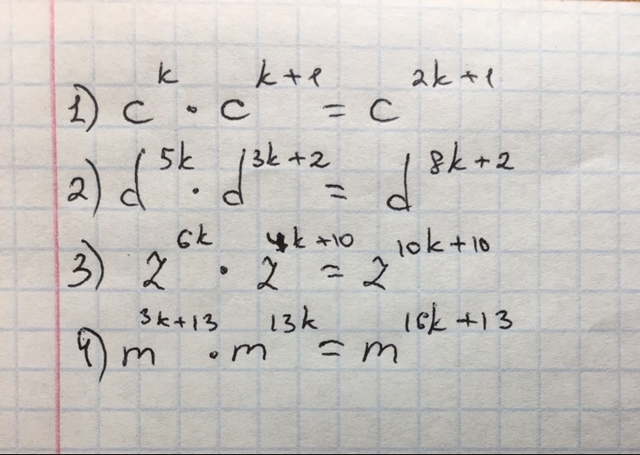 1) c^k · c^{k+1} = c^{2k+1}
2) d^{5k} · d^{3k+2} = d^{8k+2}
3) z^{6k} · z^{4k+10} = z^{10k+10}
4) m^{3k+13} · m^{13k} = m^{16k+13}